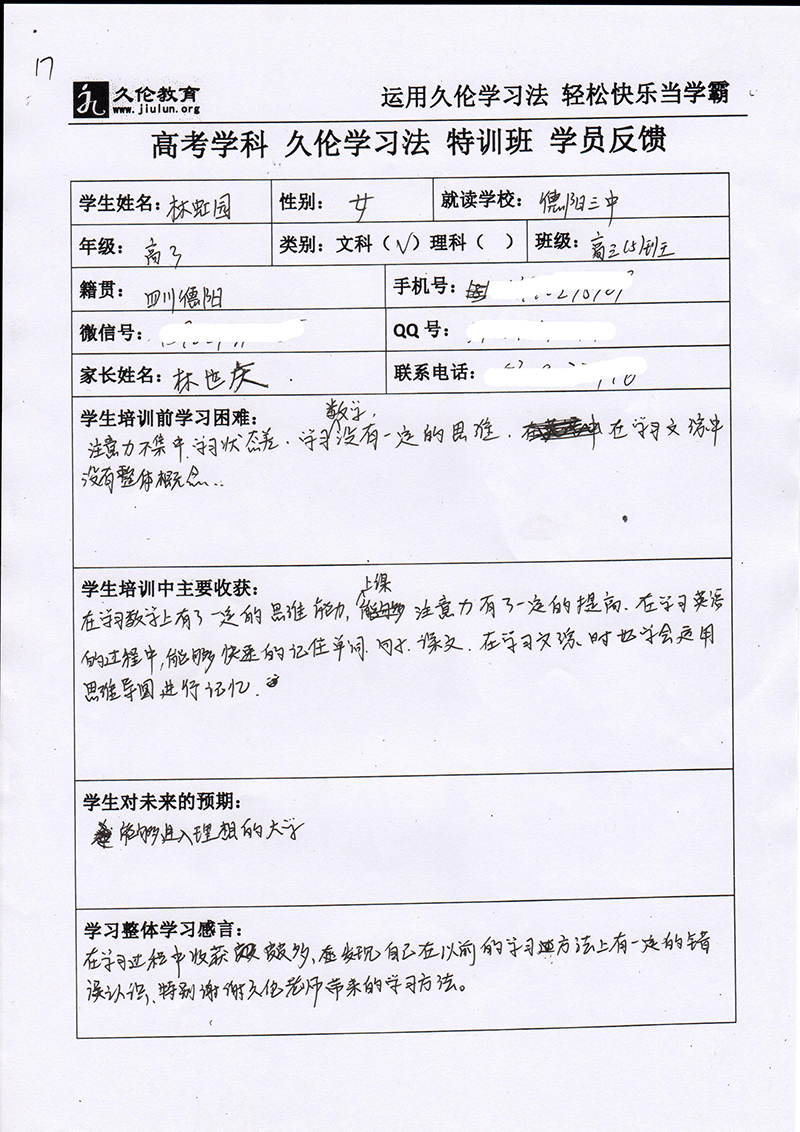 17
久伦教育
www.jiulun.org
运用久伦学习法 轻松快乐当学霸
高考学科 久伦学习法 特训班 学员反馈
学生姓名：林虹园 性别：女 就读学校：德阳三中
年级：高3 类别：文科（√）理科（ ） 班级：高三
籍贯：四川德阳 手机号：
微信号： QQ号：
家长姓名：林世庆 联系电话：
学生培训前学习困难：
注意力不集中、学习状态差、学习数学没有一定的思维，在学习文综中
没有整体概念...
学生培训中主要收获：
在学习数学上有了一定的思维能力，上课注意力有了一定的提高、在学习英语
的过程中，能够快速的记住单词、句子、课文、在学习文综时也学会运用
思维导图进行记忆．
学生对未来的预期：
能够进入理想的大学
学习整体学习感言：
在学习过程中收获颇多，发现自己在以前的学习方法上有一定的错
误认识、特别谢谢久伦老师带来的学习方法。